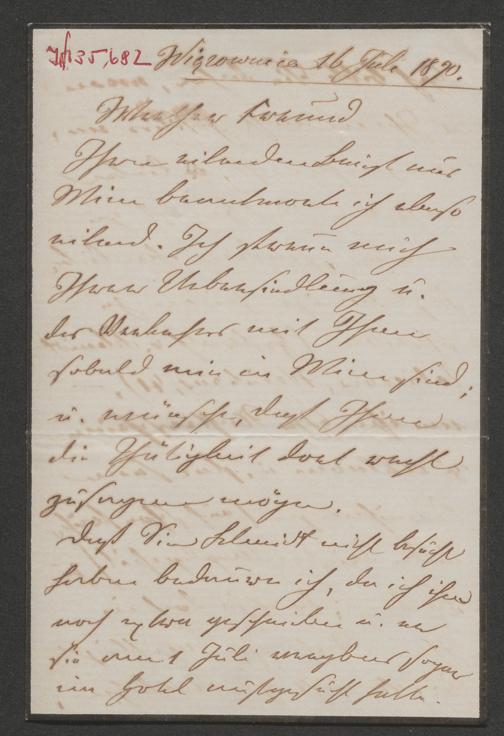 I.N. 135,682
Wigrownica 16 Juli 1890.
Werther Freund
Ihren eilenden Brief aus
Wien beantworte ich ebenso
eilend. Ich freue mich
Ihrer Übersiedlung u.
des Verkehres mit Ihnen
sobald wir in Wien sind;
u. wünsche, daß Ihnen
die Thätigkeit dort recht
zusagen möge.
Daß Sie Schmidt nicht besucht
haben bedauere ich, da ich ihm
noch geschrieben u. er
Sie am 1 Juli sogar
im Hotel aufgesucht hatte.